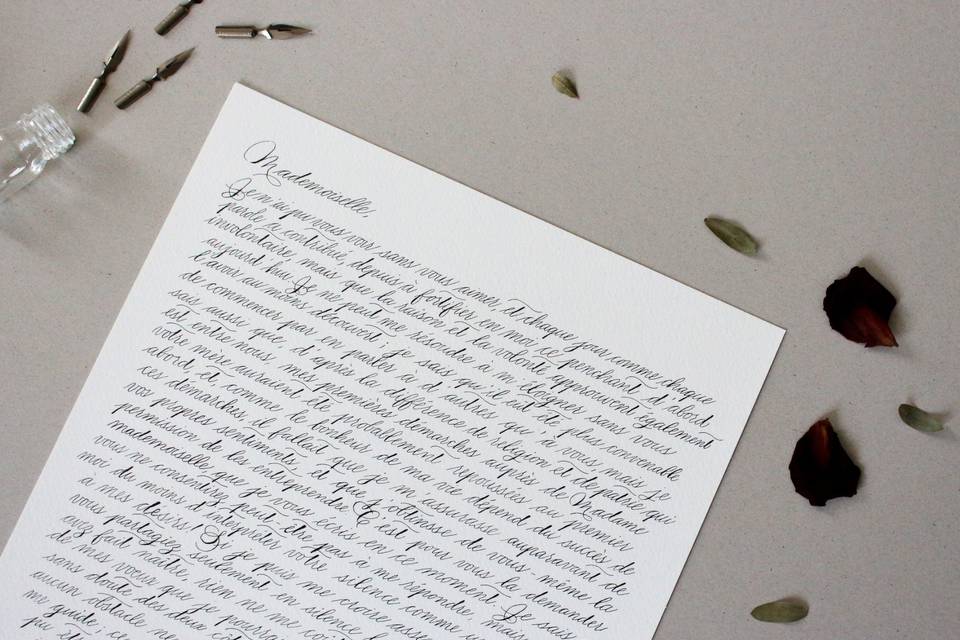 Mademoiselle,
Je n'ai pu vous voir sans vous aimer, et chaque jour comme chaque
parole a contribué, depuis à fortifier en moi ce penchant d'abord
involontaire, mais que la raison et la volonté approuvent également
aujourd'hui. Je ne peut me résoudre à m'éloigner sans vous
l'avoir au moins découvert; je sais qu'il eut été plus convenable
de commencer par en parler à d'autres qu'à vous mais je
sais aussi que, d'après la différence de religion et de patrie qui
est entre nous mes premières démarches auprès de Madame
votre mère auraient été probablement repoussées au premier
abord, et, comme le bonheur de ma vie dépend du succès de
ces démarches il fallait que je m'assurasse auparavant de
vos propres sentiments, et que j'obtinsse de vous même la
permission de les entreprendre C'est pour vous la demander
mademoiselle, que je vous écris en ce moment. Je sais
vous ne consentirez, peut-être pas à me répondre, mais
moi du moins d'interpréter votre silence comme
a mes desirs! Si je puis me croire
vous partagez seulement en silence
avez fait naître, rien ne me
de mes vœux que je
sans doute des deux
aucun obstacle ne
me guide, ce
pu